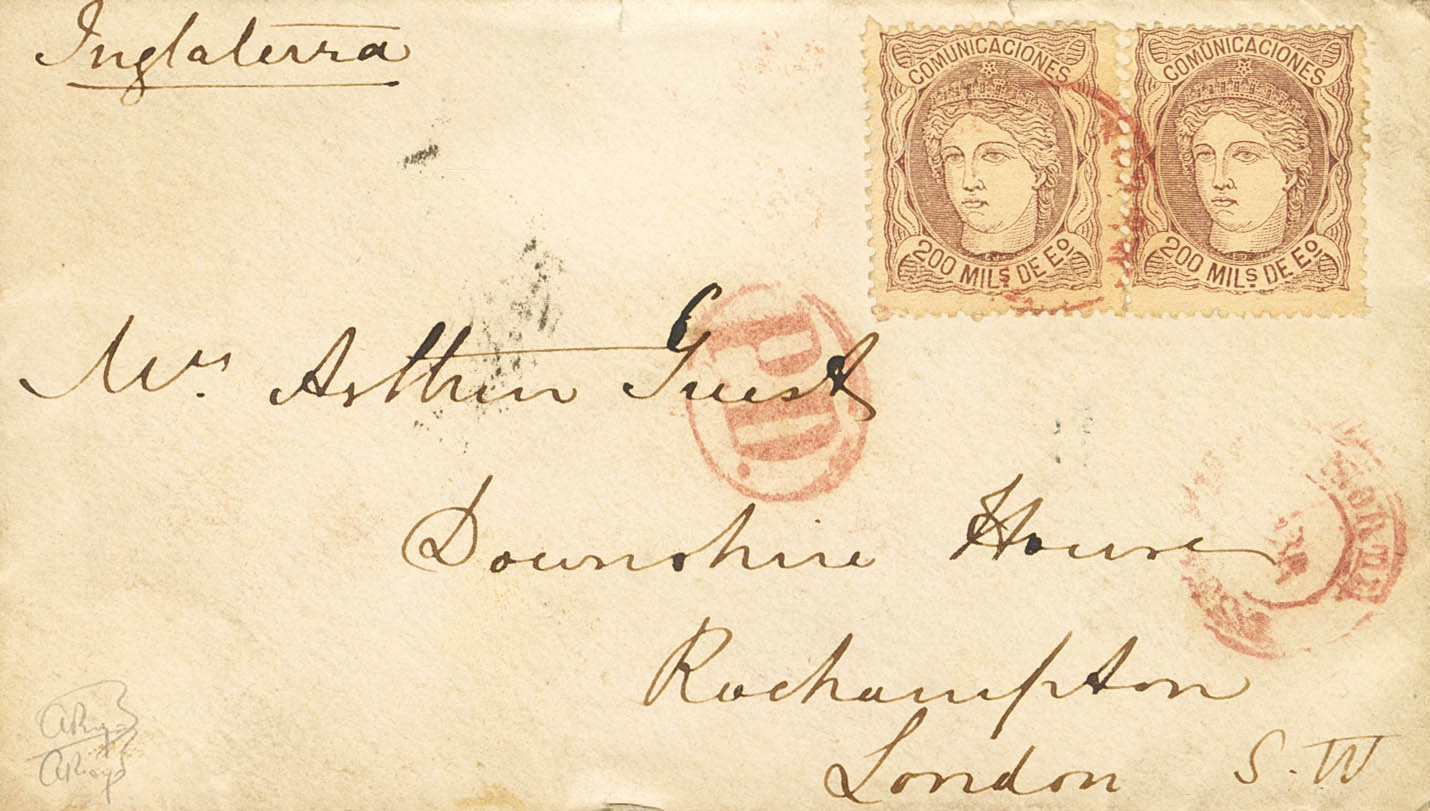 Inglaterra
COMUNICACIONES
200 MILS DE EO
COMUNICACIONES
200 MILS DE EO
P.D.
Mrs. Arthur Guest
Downshire House
Roehampton
London S.W